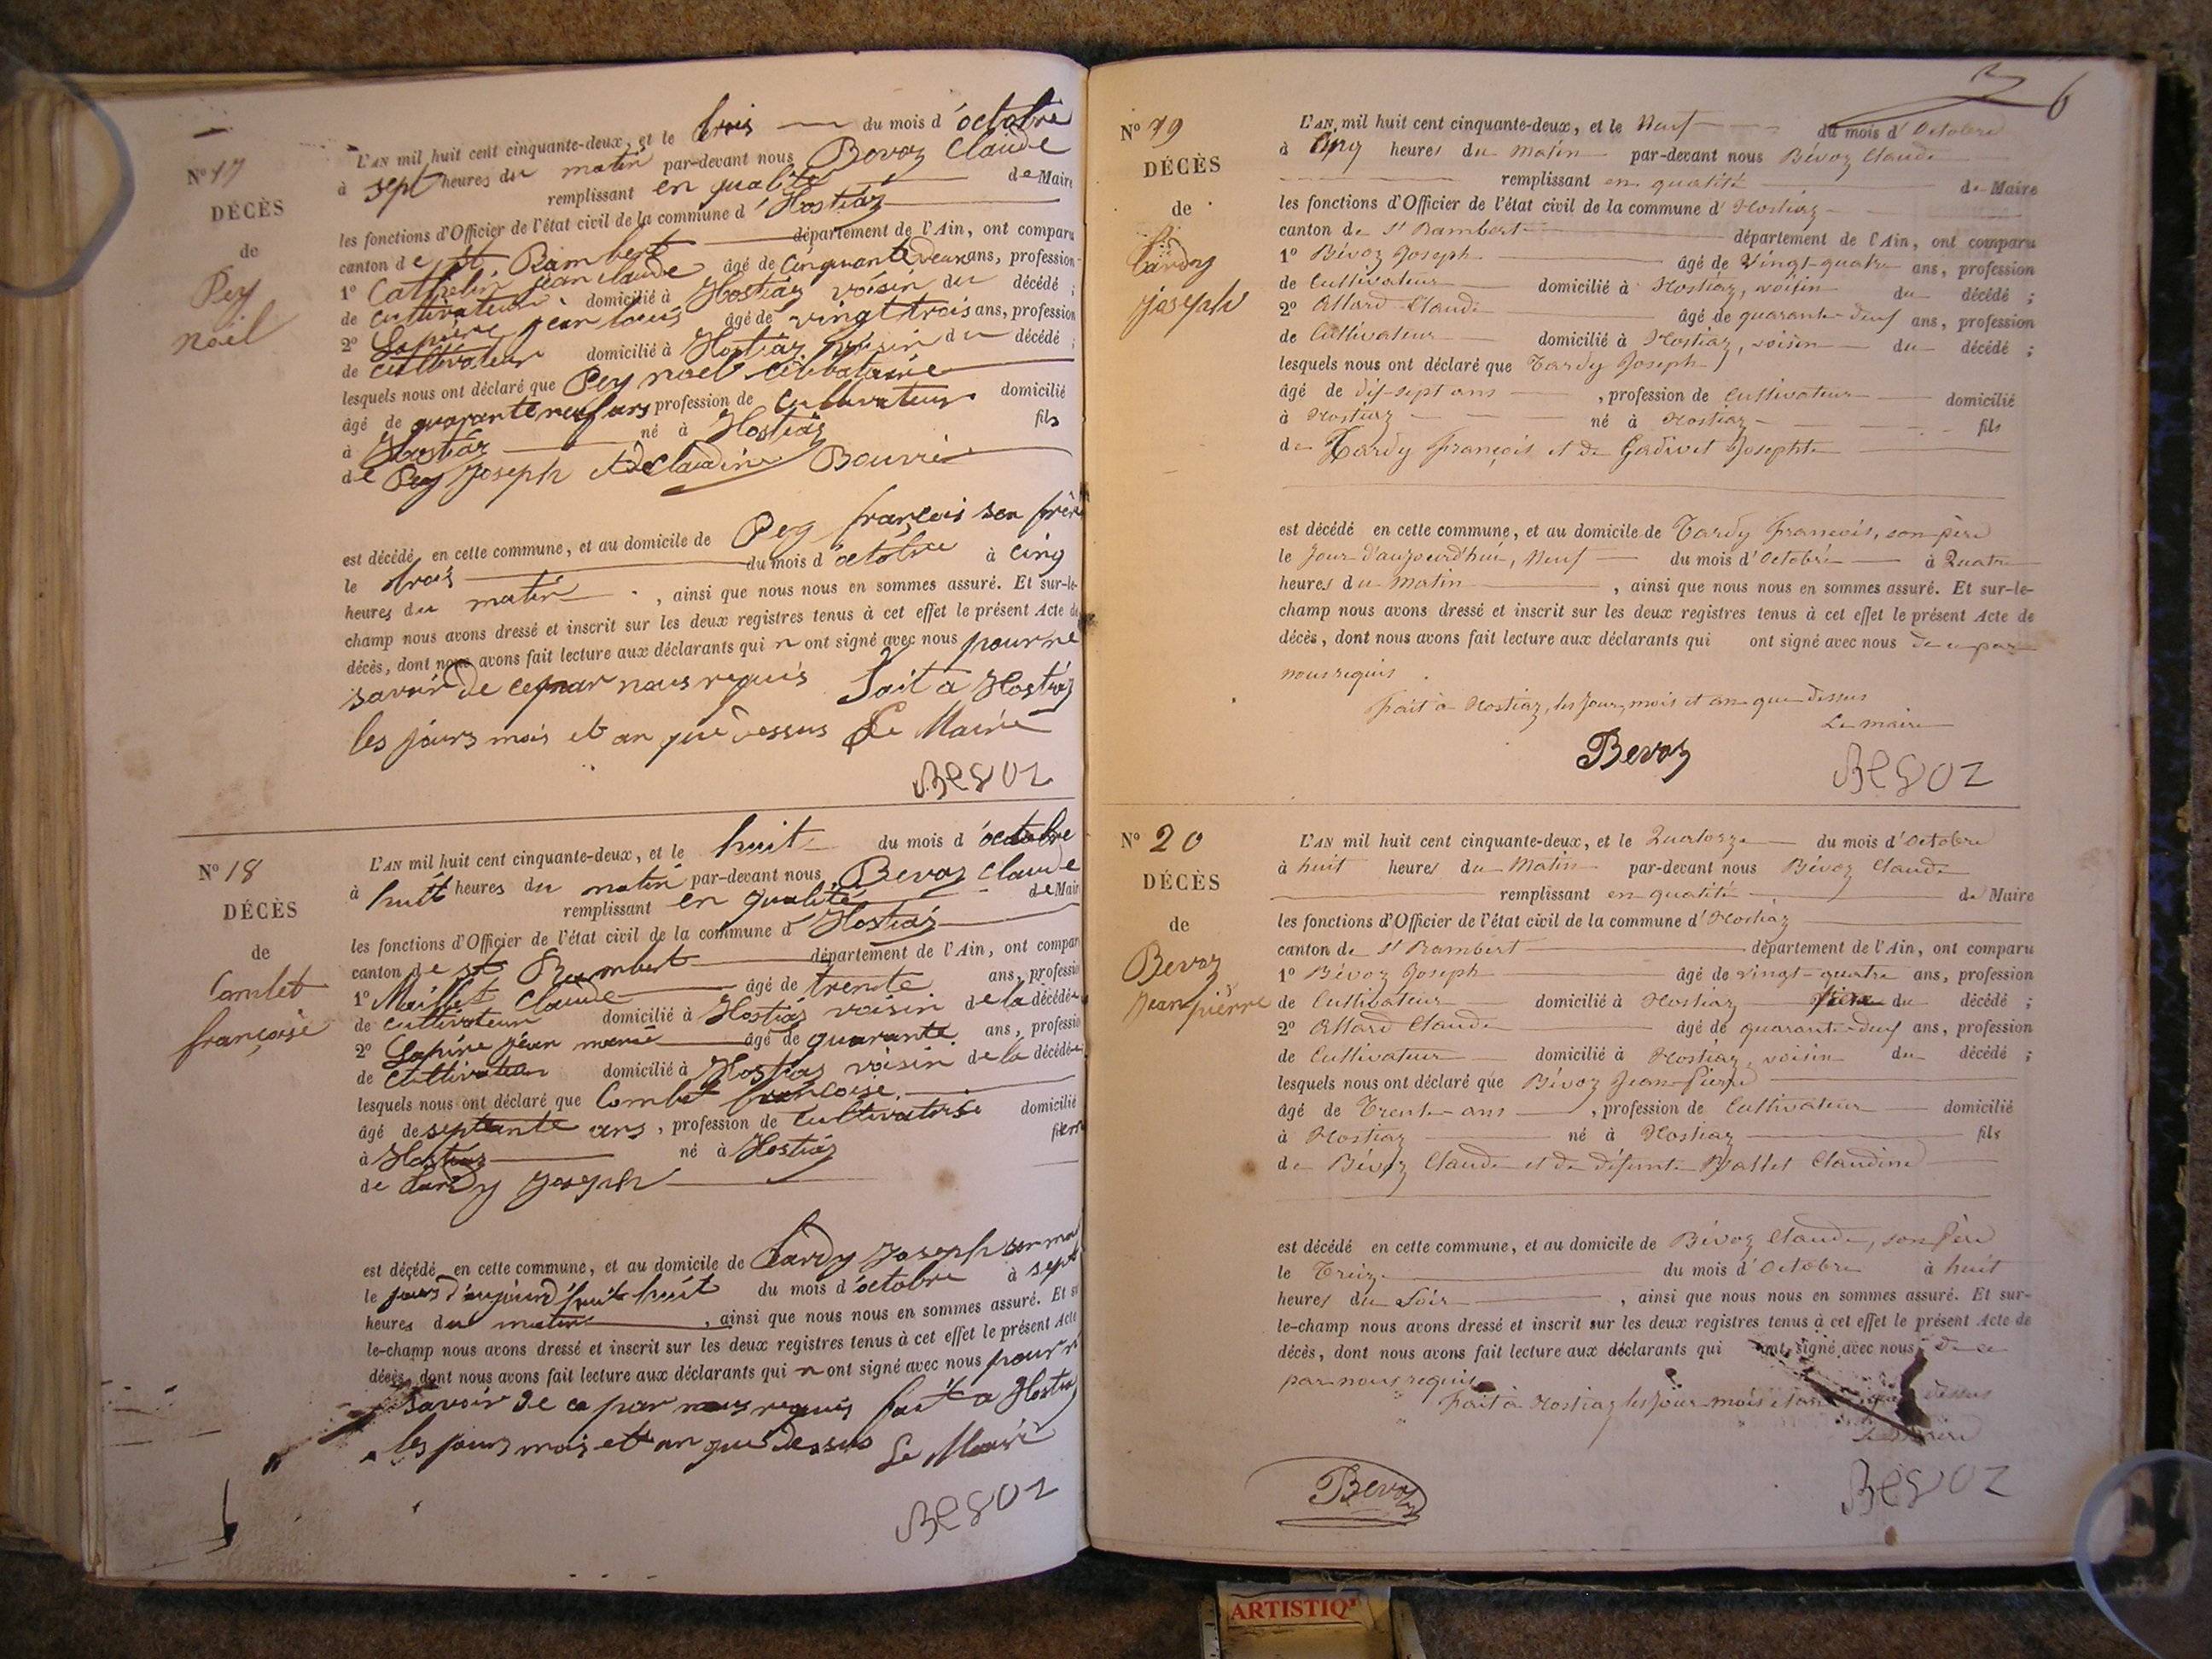 Nº 17
DÉCÈS
de
Pey
noël
L'AN mil huit cent cinquante-deux, et le trois du mois d'octobre
à sept heures du matin par-devant nous Bevoz Claude
remplissant en qualité de Maire
les fonctions d'Officier de l'état civil de la commune d'Hostiaz
canton de st Rambert département de l'Ain, ont comparu
1º Cathelin jean claude âgé de cinquante deux ans, profession
de cultivateur domicilié à Hostiaz voisin du décédé ;
2º Lapière jean louis âgé de vingt trois ans, profession
de cultivateur domicilié à Hostiaz voisin du décédé ;
lesquels nous ont déclaré que Pey noel célibataire
âgé de quarante neuf ans profession de cultivateur domicilié
à Hostiaz né à Hostiaz fils
de Pey Joseph et de Claudine Bouvié
est décédé en cette commune, et au domicile de Pey françois son frère
le trois du mois d'octobre à cinq
heures du matin, ainsi que nous nous en sommes assuré. Et sur-le-
champ nous avons dressé et inscrit sur les deux registres tenus à cet effet le présent Acte de
décès, dont nous avons fait lecture aux déclarants qui n ont signé avec nous pour ne
savoir de ce par nous requis fait à Hostiaz
les jours mois et an que dessus Le Maire
Bevoz
Nº 18
DÉCÈS
de
Combet
françoise
L'AN mil huit cent cinquante-deux, et le huit du mois d'octobre
à huit heures du matin par-devant nous Bevoz Claude
remplissant en qualité de Mair
les fonctions d'Officier de l'état civil de la commune d'Hostiaz
canton de st Rambert département de l'Ain, ont compar
1º Maillet Claude âgé de trente ans, professio
de cultivateur domicilié à Hostiaz voisin de la décédée
2º Lapière jean marie âgé de quarante ans, professio
de cultivateur domicilié à Hostiaz voisin de la décédée
lesquels nous ont déclaré que Combet françoise
âgé de septante ans, profession de cultivatrise domicilié
à Hostiaz né à Hostiaz
de tardy Joseph
est décédé en cette commune, et au domicile de tardy Joseph son ma
le jours d'aujourd'huit huit du mois d'octobre à sept
heures du matin, ainsi que nous nous en sommes assuré. Et su
le-champ nous avons dressé et inscrit sur les deux registres tenus à cet effet le présent Acte
décès, dont nous avons fait lecture aux déclarants qui n ont signé avec nous pour n
savoir de ce par nous requis fait a Hostia
les jours mois et an que dessus Le Maire
Bevoz
6
Nº 19
DÉCÈS
de
tardy
joseph
L'AN mil huit cent cinquante-deux, et le Neuf du mois d'Octobre
à Cinq heures du Matin par-devant nous Bévoz Claude
remplissant en qualité de Maire
les fonctions d'Officier de l'état civil de la commune d'Hostiaz
canton de St Rambert département de l'Ain, ont comparu
1º Bévoz Joseph âgé de Vingt-quatre ans, profession
de Cultivateur domicilié à Hostiaz, voisin du décédé ;
2º Allard Claude âgé de quarante-deuf ans, profession
de Cultivateur domicilié à Hostiaz, voisin du décédé ;
lesquels nous ont déclaré que Tardy Joseph
âgé de dix-sept ans, profession de Cultivateur domicilié
à Hostiaz né à Hostiaz fils
de Tardy françois et de Gadivet Josephte
est décédé en cette commune, et au domicile de Tardy François, son père
le Jour d'aujourd'hui, Neuf du mois d'Octobre à Quatre
heures du Matin, ainsi que nous nous en sommes assuré. Et sur-le-
champ nous avons dressé et inscrit sur les deux registres tenus à cet effet le présent Acte de
décès, dont nous avons fait lecture aux déclarants qui ont signé avec nous de ce par
nous requis
fait à Hostiaz, les jour, mois et an que dessus
Le maire
Bevoz Bevoz
Nº 20
DÉCÈS
de
Bevoz
Jean pierre
L'AN mil huit cent cinquante-deux, et le Quatorze du mois d'Octobre
à huit heures du Matin par-devant nous Bévoz Claude
remplissant en qualité de Maire
les fonctions d'Officier de l'état civil de la commune d'Hostiaz
canton de St Rambert département de l'Ain, ont comparu
1º Bévoz Joseph âgé de vingt-quatre ans, profession
de Cultivateur domicilié à Hostiaz frère du décédé ;
2º Allard Claude âgé de quarante-deuf ans, profession
de Cultivateur domicilié à Hostiaz, voisin du décédé ;
lesquels nous ont déclaré que Bévoz Jean-Pierre
âgé de Trente ans, profession de Cultivateur domicilié
à Hostiaz né à Hostiaz fils
de Bévoz Claude et de défunte Ballet Claudine
est décédé en cette commune, et au domicile de Bévoz Claude, son père
le Treize du mois d'Octobre à huit
heures du Soir, ainsi que nous nous en sommes assuré. Et sur-
le-champ nous avons dressé et inscrit sur les deux registres tenus à cet effet le présent Acte de
décès, dont nous avons fait lecture aux déclarants qui ont signé avec nous de ce
par nous requis
fait à Hostiaz les jour mois et an que dessus
Bevoz Bevoz
ARTISTIQ